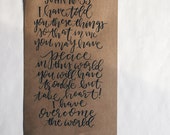 John 16:33
I have told
you these things
so that in me
you may have
peace
in this world
you will have
trouble but
take heart!
I have
overcome
the world.